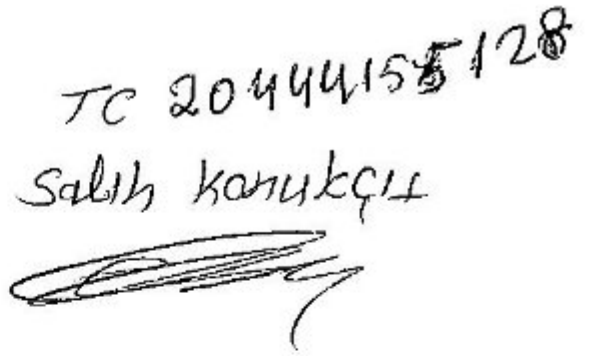 TC 20444155128
Salih Konukçıı